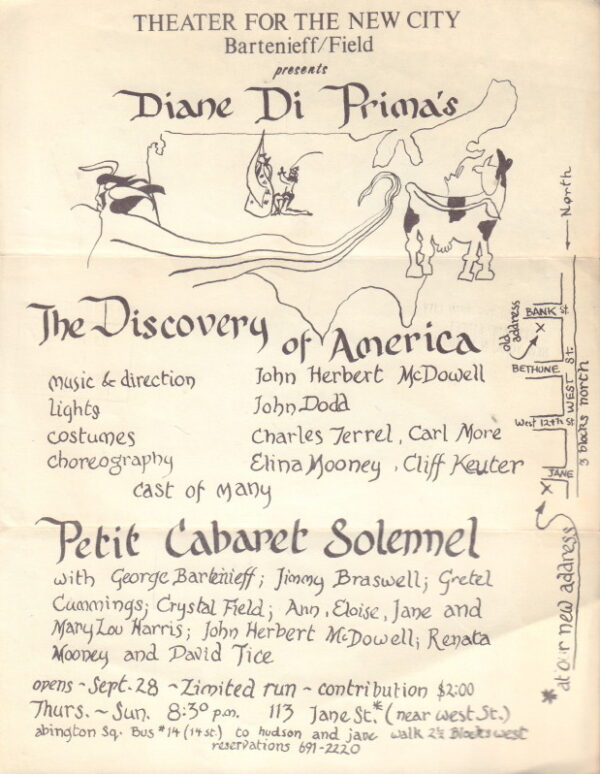 THEATER FOR THE NEW CITY
Bartenieff/Field
presents
Diane Di Prima's
The Discovery
of America
music & direction John Herbert McDowell
lights John Dodd
costumes Charles Terrel, Carl More
choreography Elina Mooney, Cliff Keuter
cast of many
Petit Cabaret Solennel
with George Bartenieff; Jimmy Braswell; Gretel
Cummings; Crystal Field; Ann, Eloise, Jane and
Mary Lou Harris; John Herbert McDowell; Renata
Mooney and David Tice
opens ~ Sept. 28 ~ Limited run ~ contribution $2:00
Thurs. ~ Sun. 8:30 p.m. 113 Jane St.* (near west St.)
abington Sq. Bus #14 (14 st.) to hudson and jane walk 2½ Blocks west
reservations 691-2220
← North
old address
X
BANK St.
BETHUNE
West 12th St
WEST St.
JANE
X
3 blocks north
* at our new address